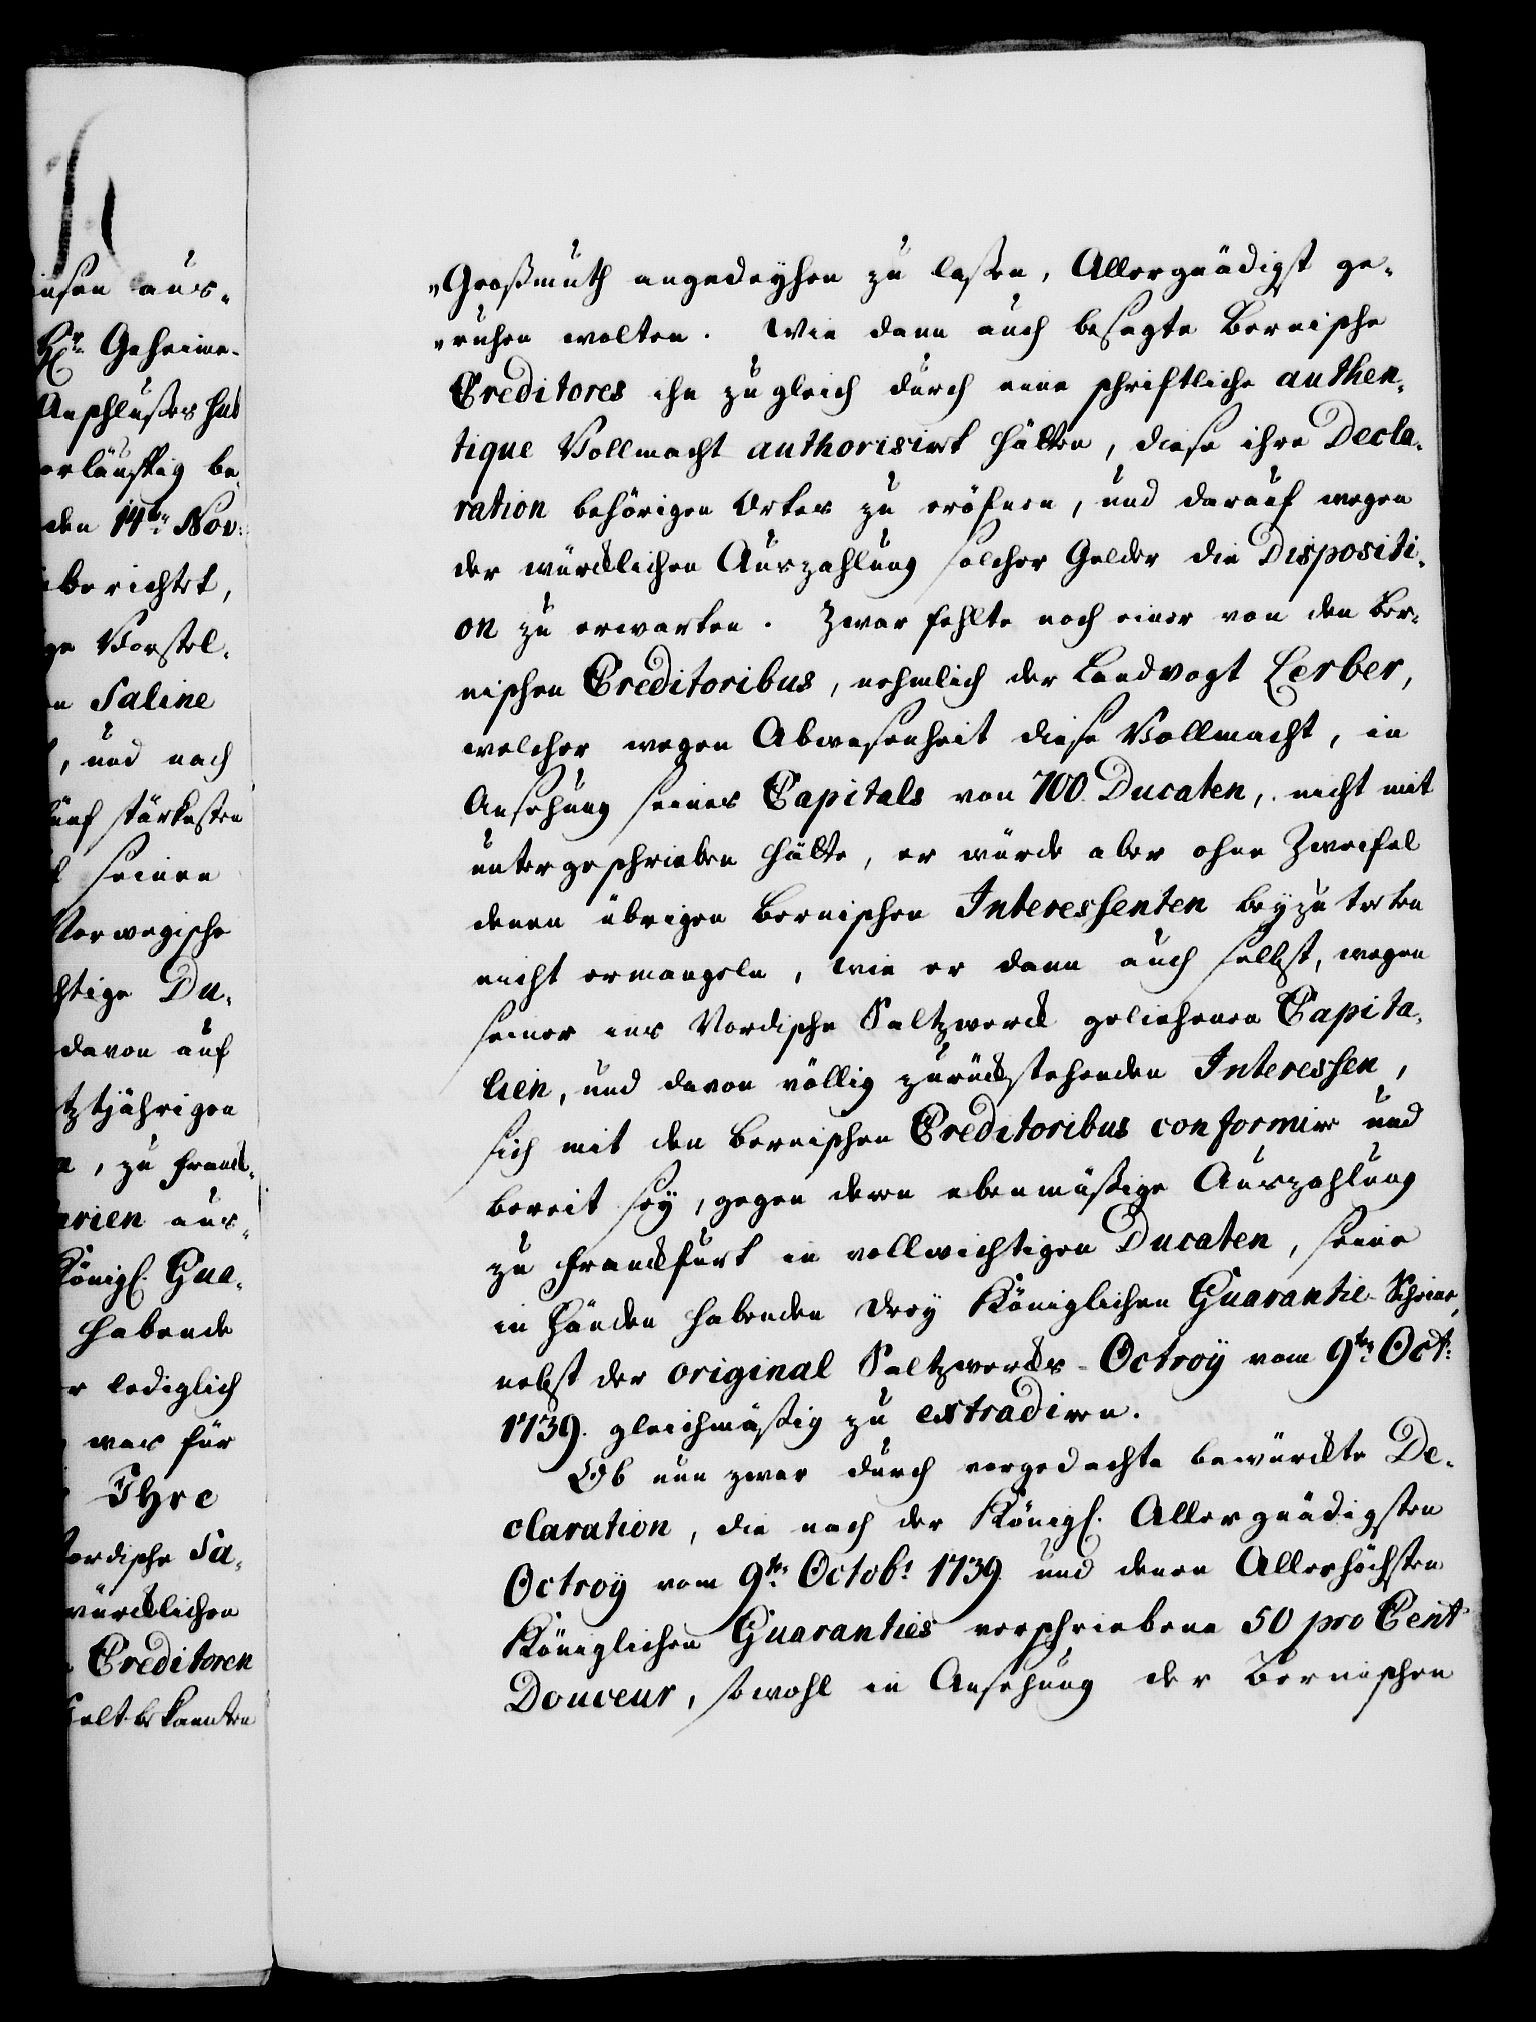 insen aus-
H.r Geheime-
Anschlußes hat
orläuffig be-
den 14ten Nov:
berichtet,
ge Vorstel-
n Saline
, und nach
fünf stärkesten
seinen
Norwegische
htige Du-
davon auf
tztjährigen
, zu Franck-
arien aus-
Königl. Gua-
habende
r lediglich
was für
Ihre
ordische Sa-
würcklichen
Creditoren
Welt bekannten
„Großmuth angedeyhen zu laßen, Allergnädigst ge-
„ruhen wolten. Wie dann auch besagte Bernische
Creditores ihn zugleich durch eine schriftliche authen-
tique Vollmacht authorisirt hätten, diese ihre Decla-
ration behörigen Ortes zu eröfnen, und darauf wegen
der würcklichen Auszahlung solcher Gelder die Dispositi-
on zu erwarten. Zwar fehlte noch einer von den Ber-
nischen Creditoribus, nehmlich der Landvogt Lerber,
welcher wegen Abwesenheit diese Vollmacht, in
Ansehung seines Capitals von 700 Ducaten, nicht mit
untergeschrieben hätte, er würde aber ohne Zweifel
denen übrigen Bernischen Interessenten beyzutreten
nicht ermangeln, wie er dann auch selbst, wegen
seiner ins Nordische Saltzwerck geliehenen Capita-
lien, und davon völlig zurückstehenden Interessen,
sich mit den Bernischen Creditoribus conformire und
bereit sey, gegen deren ebenmäßige Auszahlung
zu Franckfurt in vollwichtigen Ducaten, seine
in Händen habenden drey Königlichen Guarantie-Scheine,
nebst der original Saltzwercks-Octroÿ vom 9ten Oct:
1739. gleichmäßig zu extradiren.
Ob nun zwar durch vorgedachte bewürckte De-
claration, die nach der Königl. Allergnädigsten
Octroÿ vom 9ten Octobr 1739 und denen Allerhöchsten
Königlichen Guaranties verschriebene 50 pro Cent
Douceur, sowohl in Ansehung der Bernischen